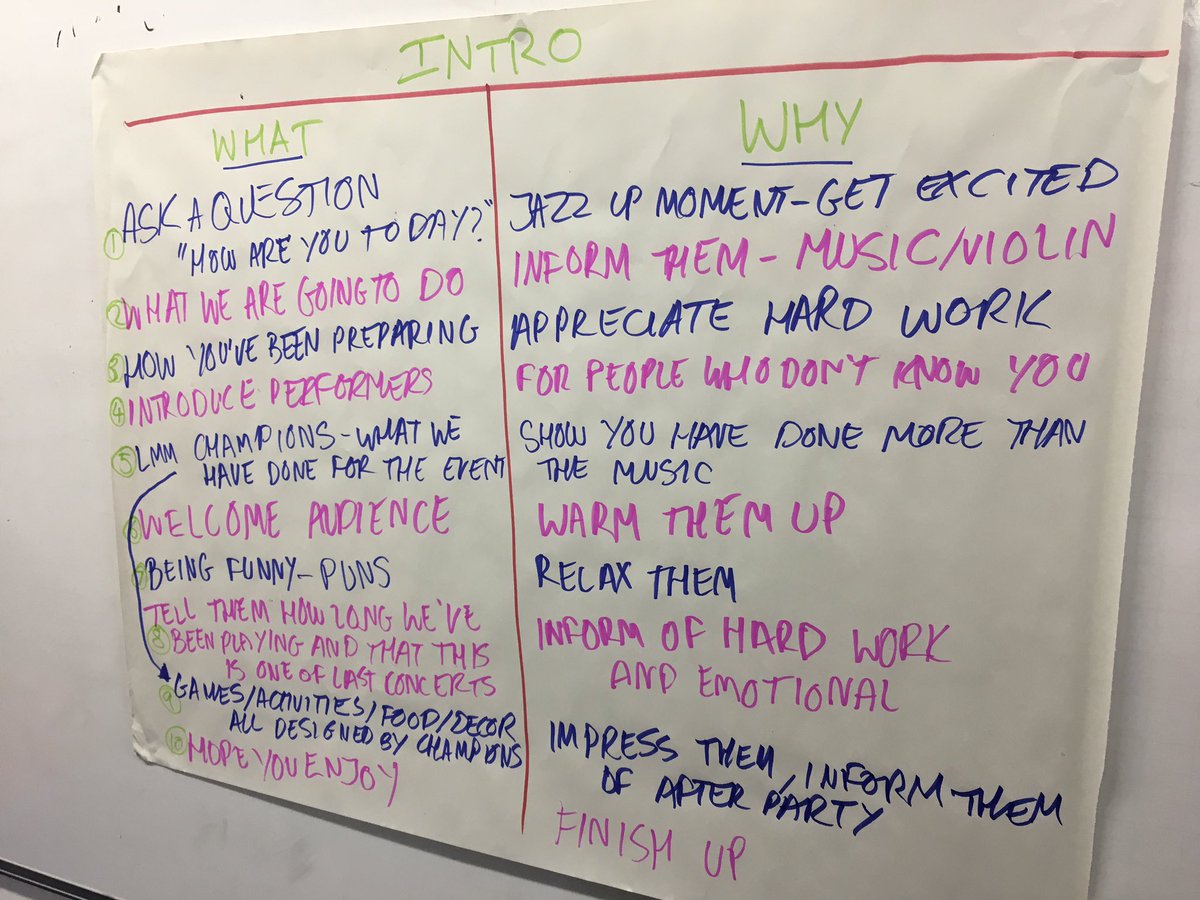 INTRO
WHAT
① ASK A QUESTION
"HOW ARE YOU TODAY?"
② WHAT WE ARE GOING TO DO
③ HOW YOU'VE BEEN PREPARING
④ INTRODUCE PERFORMERS
⑤ LMM CHAMPIONS - WHAT WE
HAVE DONE FOR THE EVENT
⑥ WELCOME AUDIENCE
⑦ BEING FUNNY - PUNS
TELL THEM HOW LONG WE'VE
⑧ BEEN PLAYING AND THAT THIS
IS ONE OF LAST CONCERTS
⑨ GAMES/ACTIVITIES/FOOD/DECOR
ALL DESIGNED BY CHAMPIONS
⑩ HOPE YOU ENJOY
WHY
JAZZ UP MOMENT - GET EXCITED
INFORM THEM - MUSIC/VIOLIN
APPRECIATE HARD WORK
FOR PEOPLE WHO DON'T KNOW YOU
SHOW YOU HAVE DONE MORE THAN
THE MUSIC
WARM THEM UP
RELAX THEM
INFORM OF HARD WORK
AND EMOTIONAL
IMPRESS THEM, INFORM THEM
OF AFTER PARTY
FINISH UP